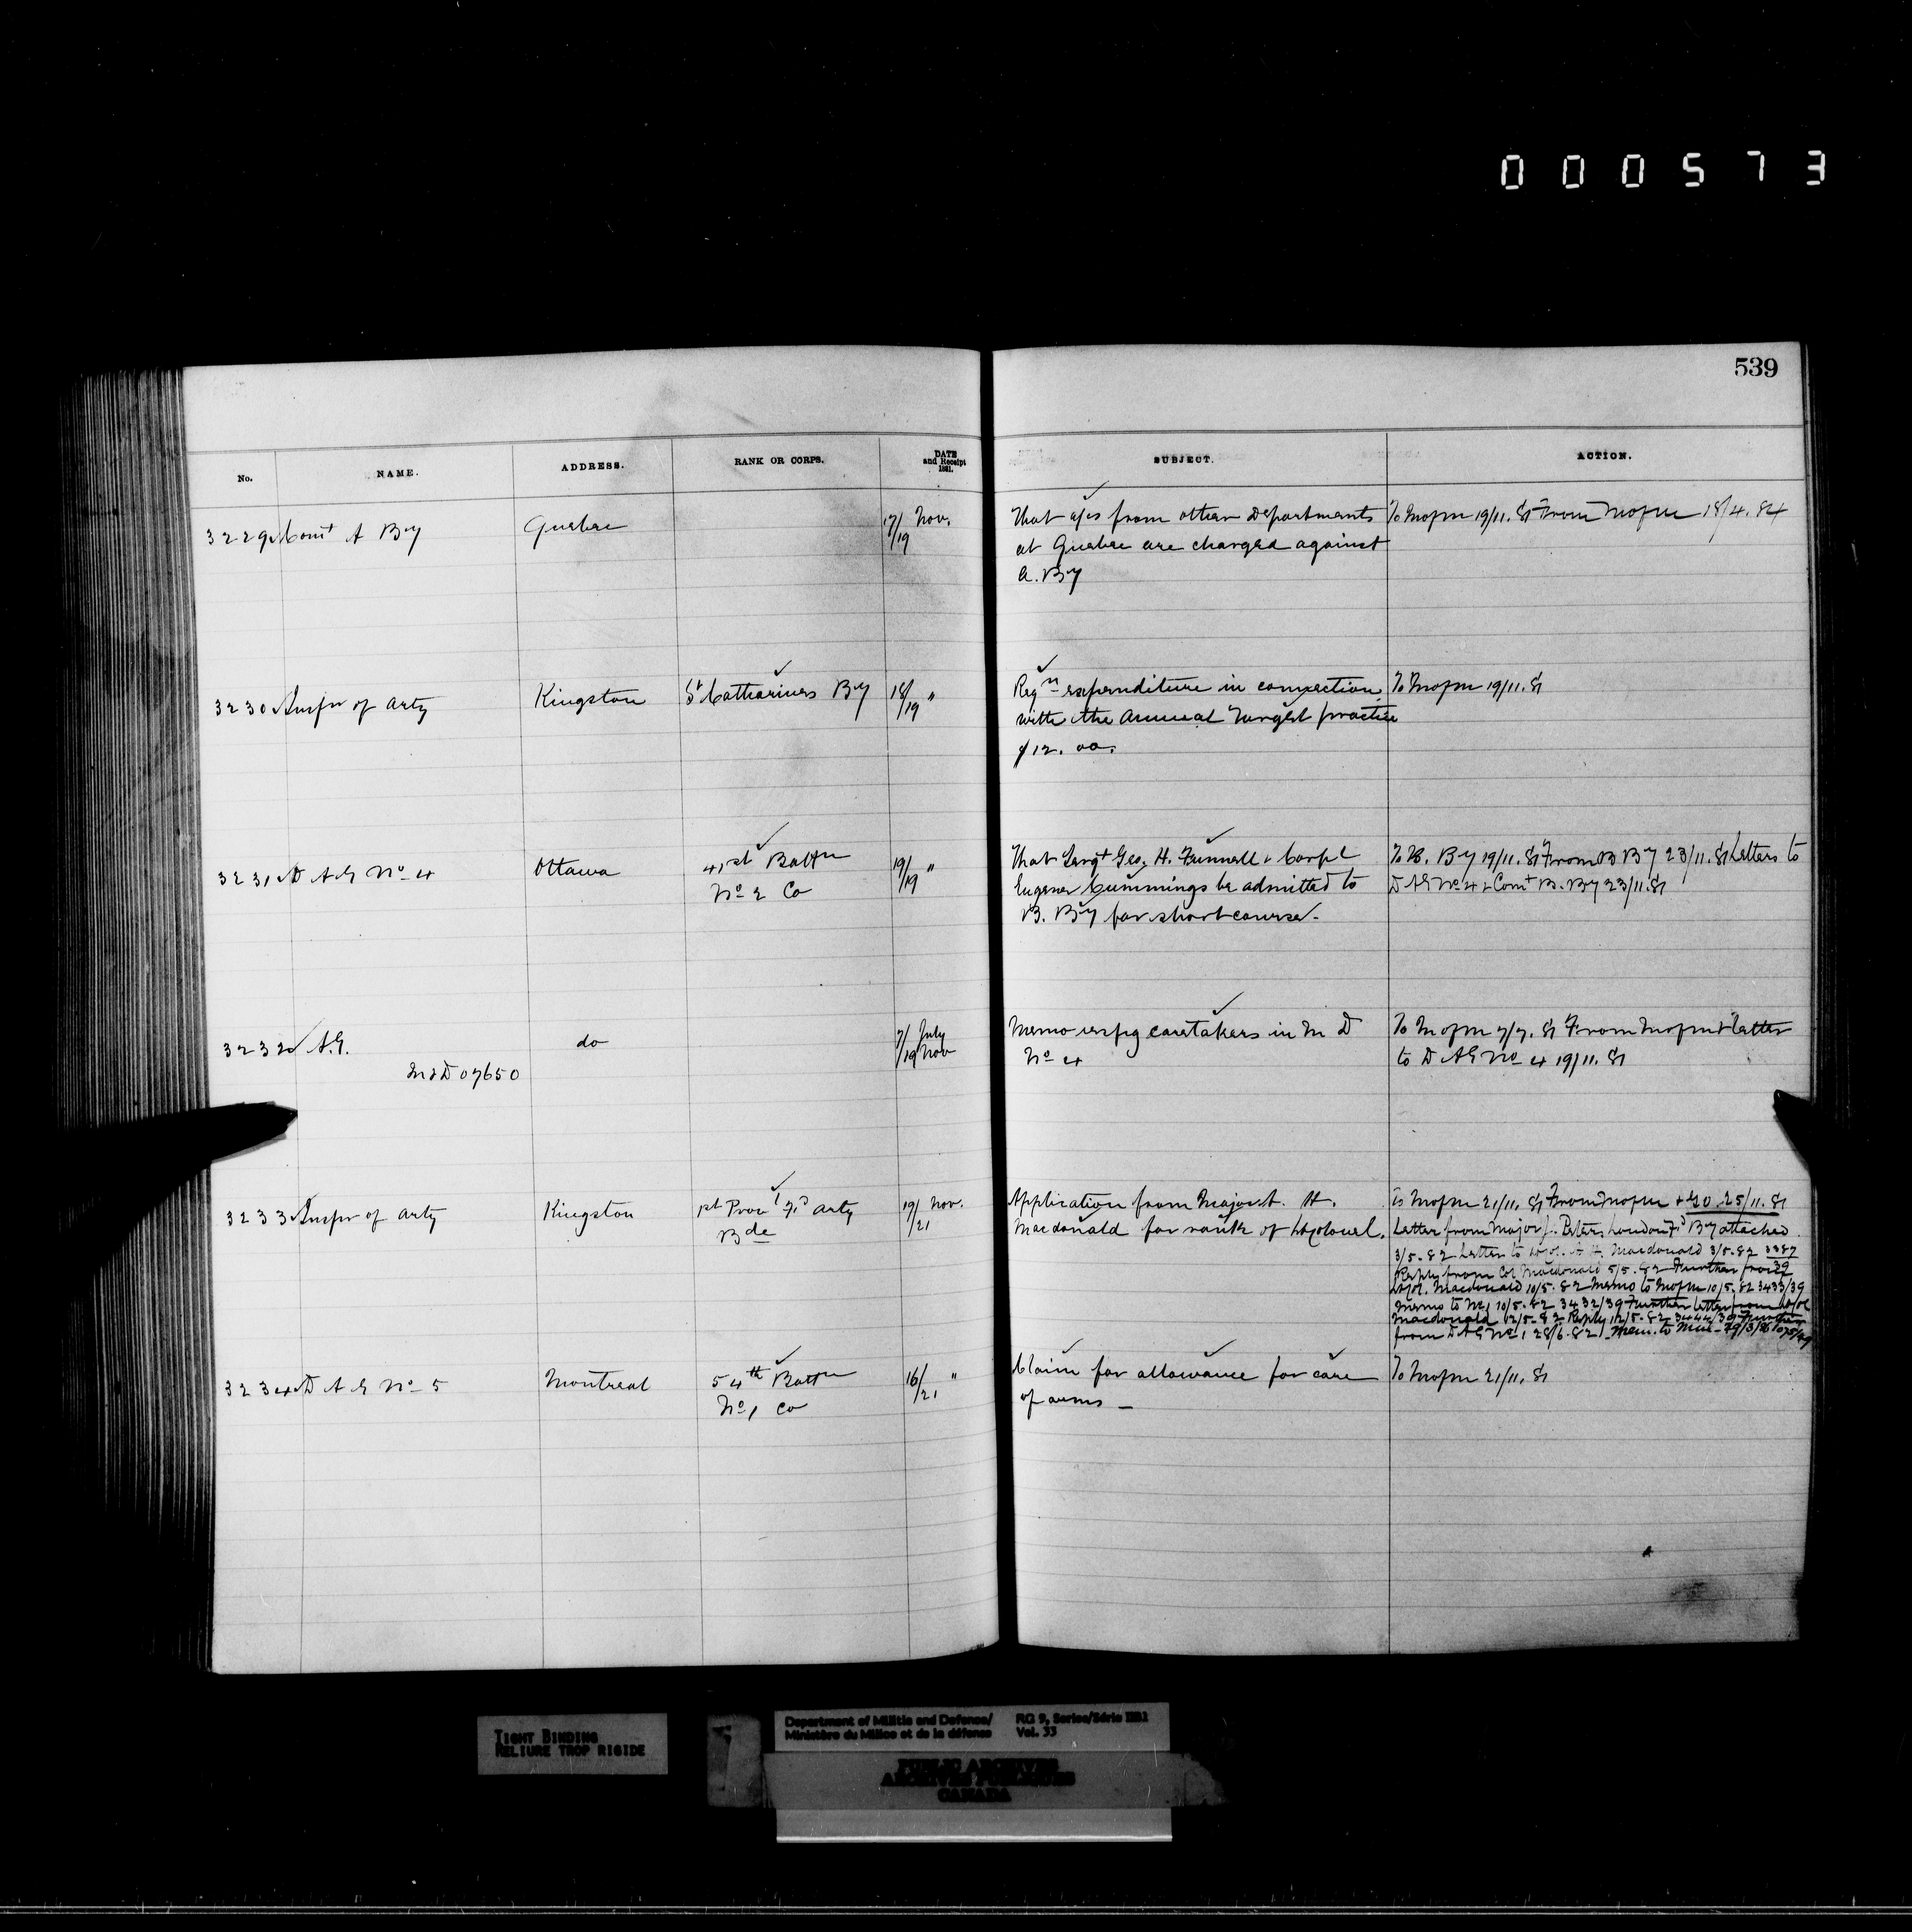 000573
539
No. NAME. ADDRESS. RANK OR CORPS. DATE and Receipt 1881. SUBJECT. ACTION.
3229 Comt A By Quebec 17/19 Nov. That a/cs from other Departments To Mofm 19/11.81 From Mofm 18/4.84
at Quebec are charged against
A. By
3230 Inspr of Arty Kingston St Catharines By 18/19 " Reqn expenditure in connection To Mofm 19/11.81
with the Annual Target practice
$12.00.
3231 D A G No 4 Ottawa 41st Battn 19/19 " That Sergt Geo. H. Funnell & Corpl To B. By 19/11.81 From B By 23/11.81 Letters to
No 2 Co Eugene Cummings be admitted to D A G No 4 & Comt B. By 23/11.81
B. By for short course.
3232 A.G. do 7/19 July Nov Memo respg caretakers in M D To Mofm 7/7.81 From Mofm & letter
M&D 07650 No 4 to D A G No 4 19/11.81
3233 Inspr of Arty Kingston 1st Provl Fd Arty 19/21 Nov. Application from Major A. H. To Mofm 21/11.81 From Mofm + GO 25/11.81
Bde Macdonald for rank of Lt Colonel. Letter from Major J. Peters, London Fd By attached
3/5.82 Letter to Lt Col. A H. Macdonald 3/5.82 3387
Reply from Col Macdonald 5/5.82 Further from 39
Lt Col. Macdonald 10/5.82 Memo to Mofm 10/5.82 3433/39
Memo to 10/5.82 3432/39 Further letter from Lt Col
Macdonald 12/5.82 Reply 12/5.82 3444/39 Further
from D A G No 1 28/6.82 Mem. to
3234 D A G No 5 Montreal 54th Battn 16/21 " Claim for allowance for care To Mofm 21/11.81
No 1 Co of arms —
TIGHT BINDING
RELIURE TROP RIGIDE
Department of Militia and Defence/ RG 9, Series/Série IIB1
Ministère du Milice et de la défense Vol. 33
PUBLIC ARCHIVES
ARCHIVES PUBLIQUES
CANADA